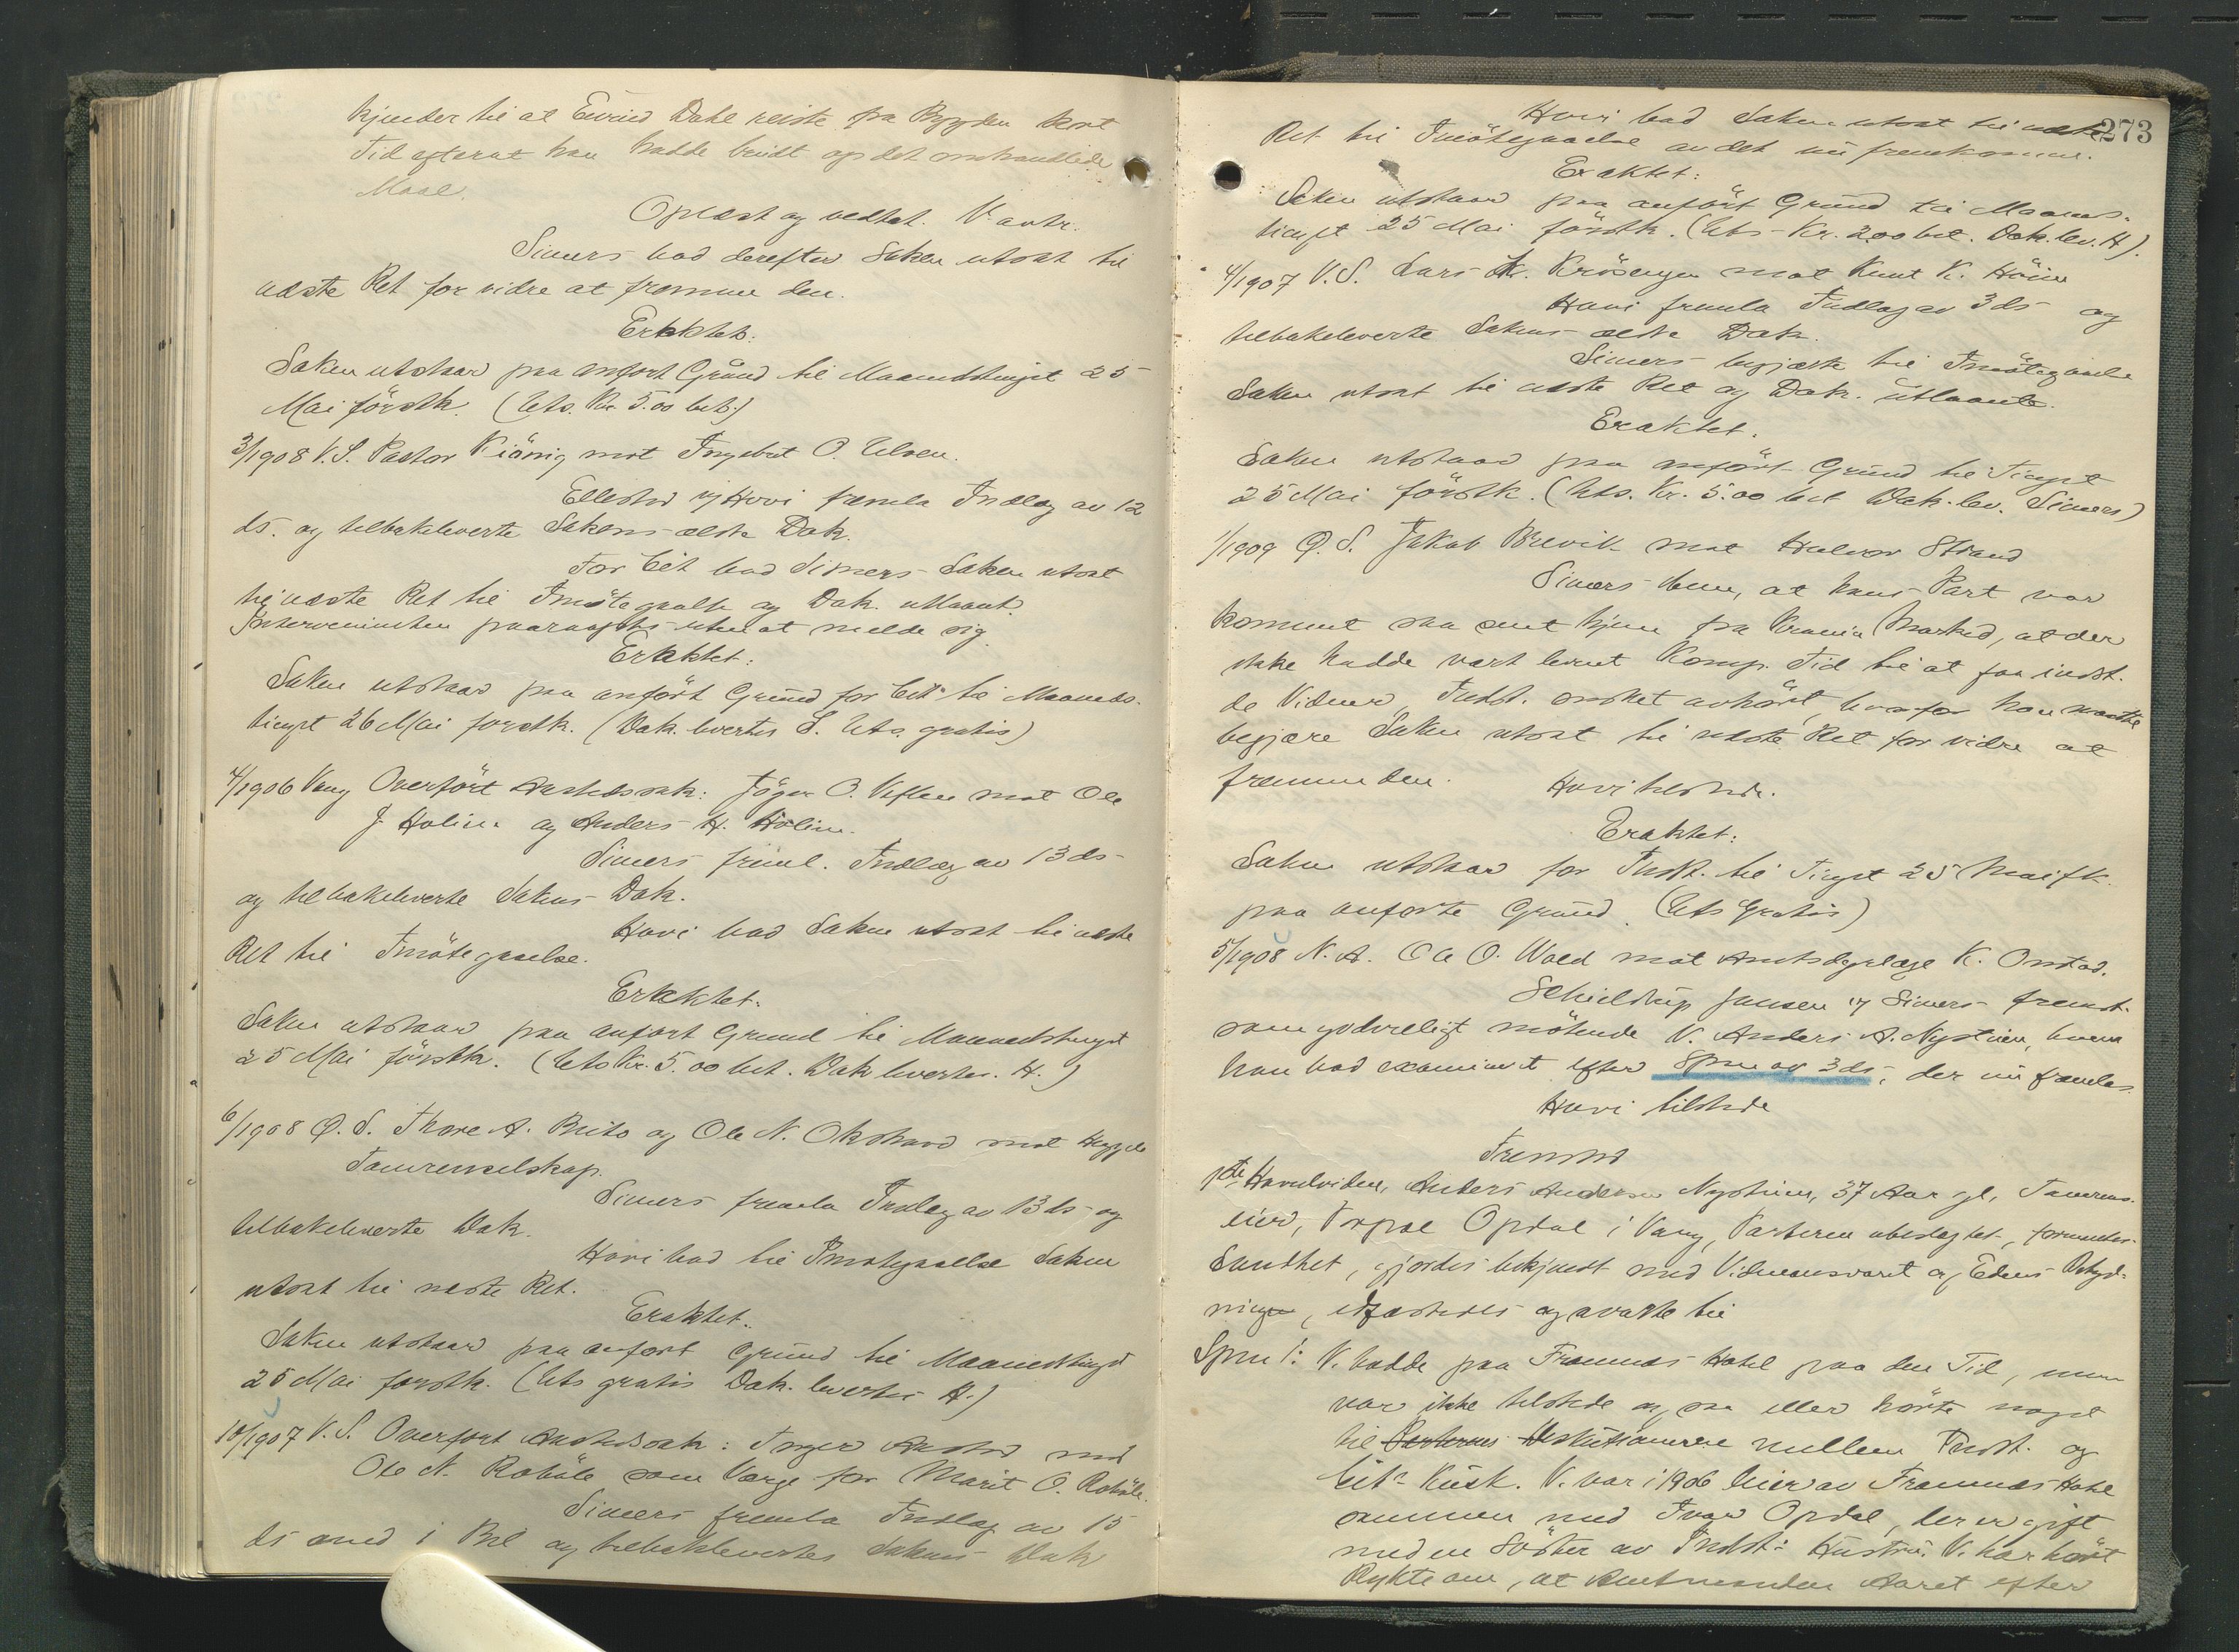 kjender til at Eivind Dahl reiste fra Bygden kort
Tid efterat han hadde brudt op det omhandlede
Maal.
Oplæst og vedtat. V. antr.
Simers bad derefter Saken utsat til
næste Ret for vidre at fremme den.
Eraktet:
Saken utstaar paa anført Grund til Maanedstinget 25
Mai førstk. (Uts. Kr. 5.00 bet.)
3/1908 V.S. Pastor Kiønig mot Ingebret O. Ulven.
Ellestad v/ Hovi fremla Indlæg av 12
ds. og tilbakeleverte Sakens ældre Dok.
For Cit. bad Simers Saken utsat
til næste Ret til Imøtegaaelse og Dok. utlaant.
Intervenienten paaraaptes uten at melde sig.
Eraktet:
Saken utstaar paa anført Grund for Cit. til Maaneds-
tinget 26 Mai førstk. (Dok. levertes S. Uts. gratis)
4/1906 Vang Overført Aastedssak: Jøger O. Veflen mot Ole
J. Holien og Anders H. Holien.
Simers freml. Indlæg av 13 ds
og tilbakeleverte Sakens Dok.
Hovi bad Saken utsat til næste
Ret til Imøtegaaelse.
Eraktet:
Saken utstaar paa anført Grund til Maanedstinget
25 Mai førstk. (Uts Kr. 5.00 bet. Dok levertes. H.)
6/1908 Ø.S. Thore A. Beito og Ole N. Okshovd mot Hegge
Tamrenselskap.
Simers fremla Indlæg av 13 ds og
tilbakeleverte Dok.
Hovi bad til Imøtegaaelse Saken
utsat til næste Ret.
Eraktet:
Saken utstaar paa anført Grund til Maanedstinget
25 Mai førstk. (Uts gratis Dok. levertes H.)
10/1907 V.S. Overført Aastedssak: Inger Aastad mot
Ole N. Robøle som Værge for Marit O. Robøle.
Simers fremla Indlæg av 15
ds med 1 Bil og tilbakelevertes Sakens Dok
273
Hovi bad Saken utsat til næste
Ret til Imøtegaaelse av det nu fremkomne.
Eraktet:
Saken utstaar paa anført Grund til Maaneds-
tinget 25 Mai førstk. (Uts Kr. 2.00 bet. Dok. lev. H).
4/1907 V.S. Lars K. Krøsengen mot Knut K. Höiin
Hovi fremla Indlæg av 3 ds og
tilbakeleverte Sakens ældre Dok.
Simers begjærte til Imøtegaaelse
Saken utsat til næste Ret og Dok. utlaante.
Eraktet:
Saken utstaar paa anført Grund til Tinget
25 Mai førstk. (Uts. Kr. 5.00 bet Dok. lev. Simers)
1/1909 Ø.S. Jakob Brevik mot Halvor Strand
Simers bem, at hans Part var
kommet saa sent hjem fra Krania Marked, at der
ikke hadde vært levnet Komp. Tid til at faa indst.
de Vidner, Indst. ønsket avhørt, hvorfor han maatte
begjære Saken utsat til næste Ret for vidre at
fremme den.
Hovi tilstede.
Eraktet:
Saken utstaar for Indst. til Tinget 25 Mai fk.
paa anførte Grund. (Uts Gratis)
5/1908 N.A. Ole O. Wold mot Amtsdyrlæge K. Onstad.
Schieldrup Jansen v/ Simers fremst.
som godvilligt mötende V. Anders A. Nystuen, hvem
han bad examineret efter Spm av 3 ds, der nu fremlas.
Hovi tilstede
Fremstod
1ste Hovedvidne, Anders Andersen Nystuen, 37 Aar gl, Tamrens-
eier, Forpak Opdal i Vang, Parterne ubeslegtet, formaner
Sandhet, gjordes bekjendt med Vidneansvaret og Edens Betyd-
ningen, edfæstedes og svarte til
Spm 1: V. bodde paa Framnæs Hotel paa den Tid, men
var ikke tilstede og saa eller hørte noget
til Parternes Diskutionerne mellem Indst. og
Cit. Kusk. V. var i 1906 Eier av Framnæs Hotel
sammen med Ivar Opdal, der er gift
med en Søster av Indst: Hustru. V. har hørt
Rykte om, at Amtmanden Aaret efter